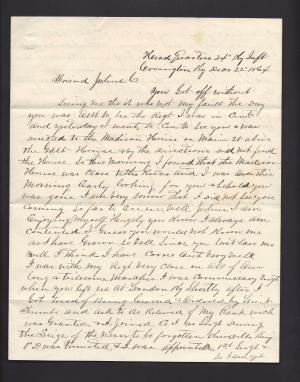 Head Quarters 24" Ky Inft
Covington Ky Decr 22" 1864
Friend Julius
You Got off without
Seeing me tho it was not my fault The day
you was to see the Regt I was in
and yesterday I went to See you I was
directed to the Madison House on Main St above
the Galt House by the directions and not find
the House. So this Morning I found that the Madison
House was Close to the River and I was over this
Morning Early looking for you & behold you
was gone I am very Sorrow that I did not See you
coming so far to see us, well Julius I am
Enjoying Myself Hugely you know I always am
Contented. I Guess you would not Know me
as I have Grown So tall Since you last Saw me
Well I think I have Come out Very well
I was with my Regt Very close on all of our
long & tedious Marches I was Commissary Sergt
when you left us at London Ky Shortly after I
Got tired of Being Cursed & Ordered by
and ask to Be Relieved of My Rank which
was Granted & I Joined Co I as Sergt During
the Siege of the Never to be forgotten Knoxville
was Promoted & I was appointed 1st Sergt